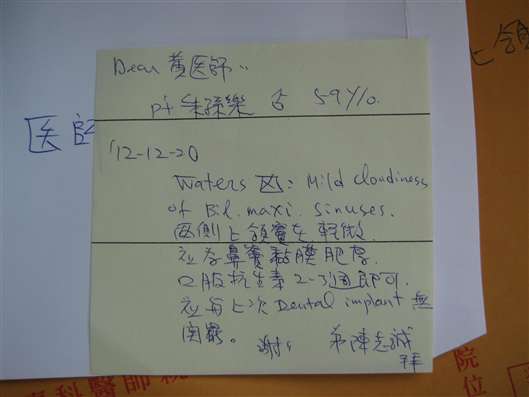 Dear 黄医師：
pt 朱孫樂 59 y/o.
'12-12-20
Waters 区: Mild cloudiness
of Bil. maxi. sinuses.
両側上領竇有輕微
应為鼻竇黏膜肥厚
口服抗生素2-3週即可.
应与上次 Dental implant 無
関. 謝謝 弟陳志誠
拜
医師
上領
科醫師
院
位